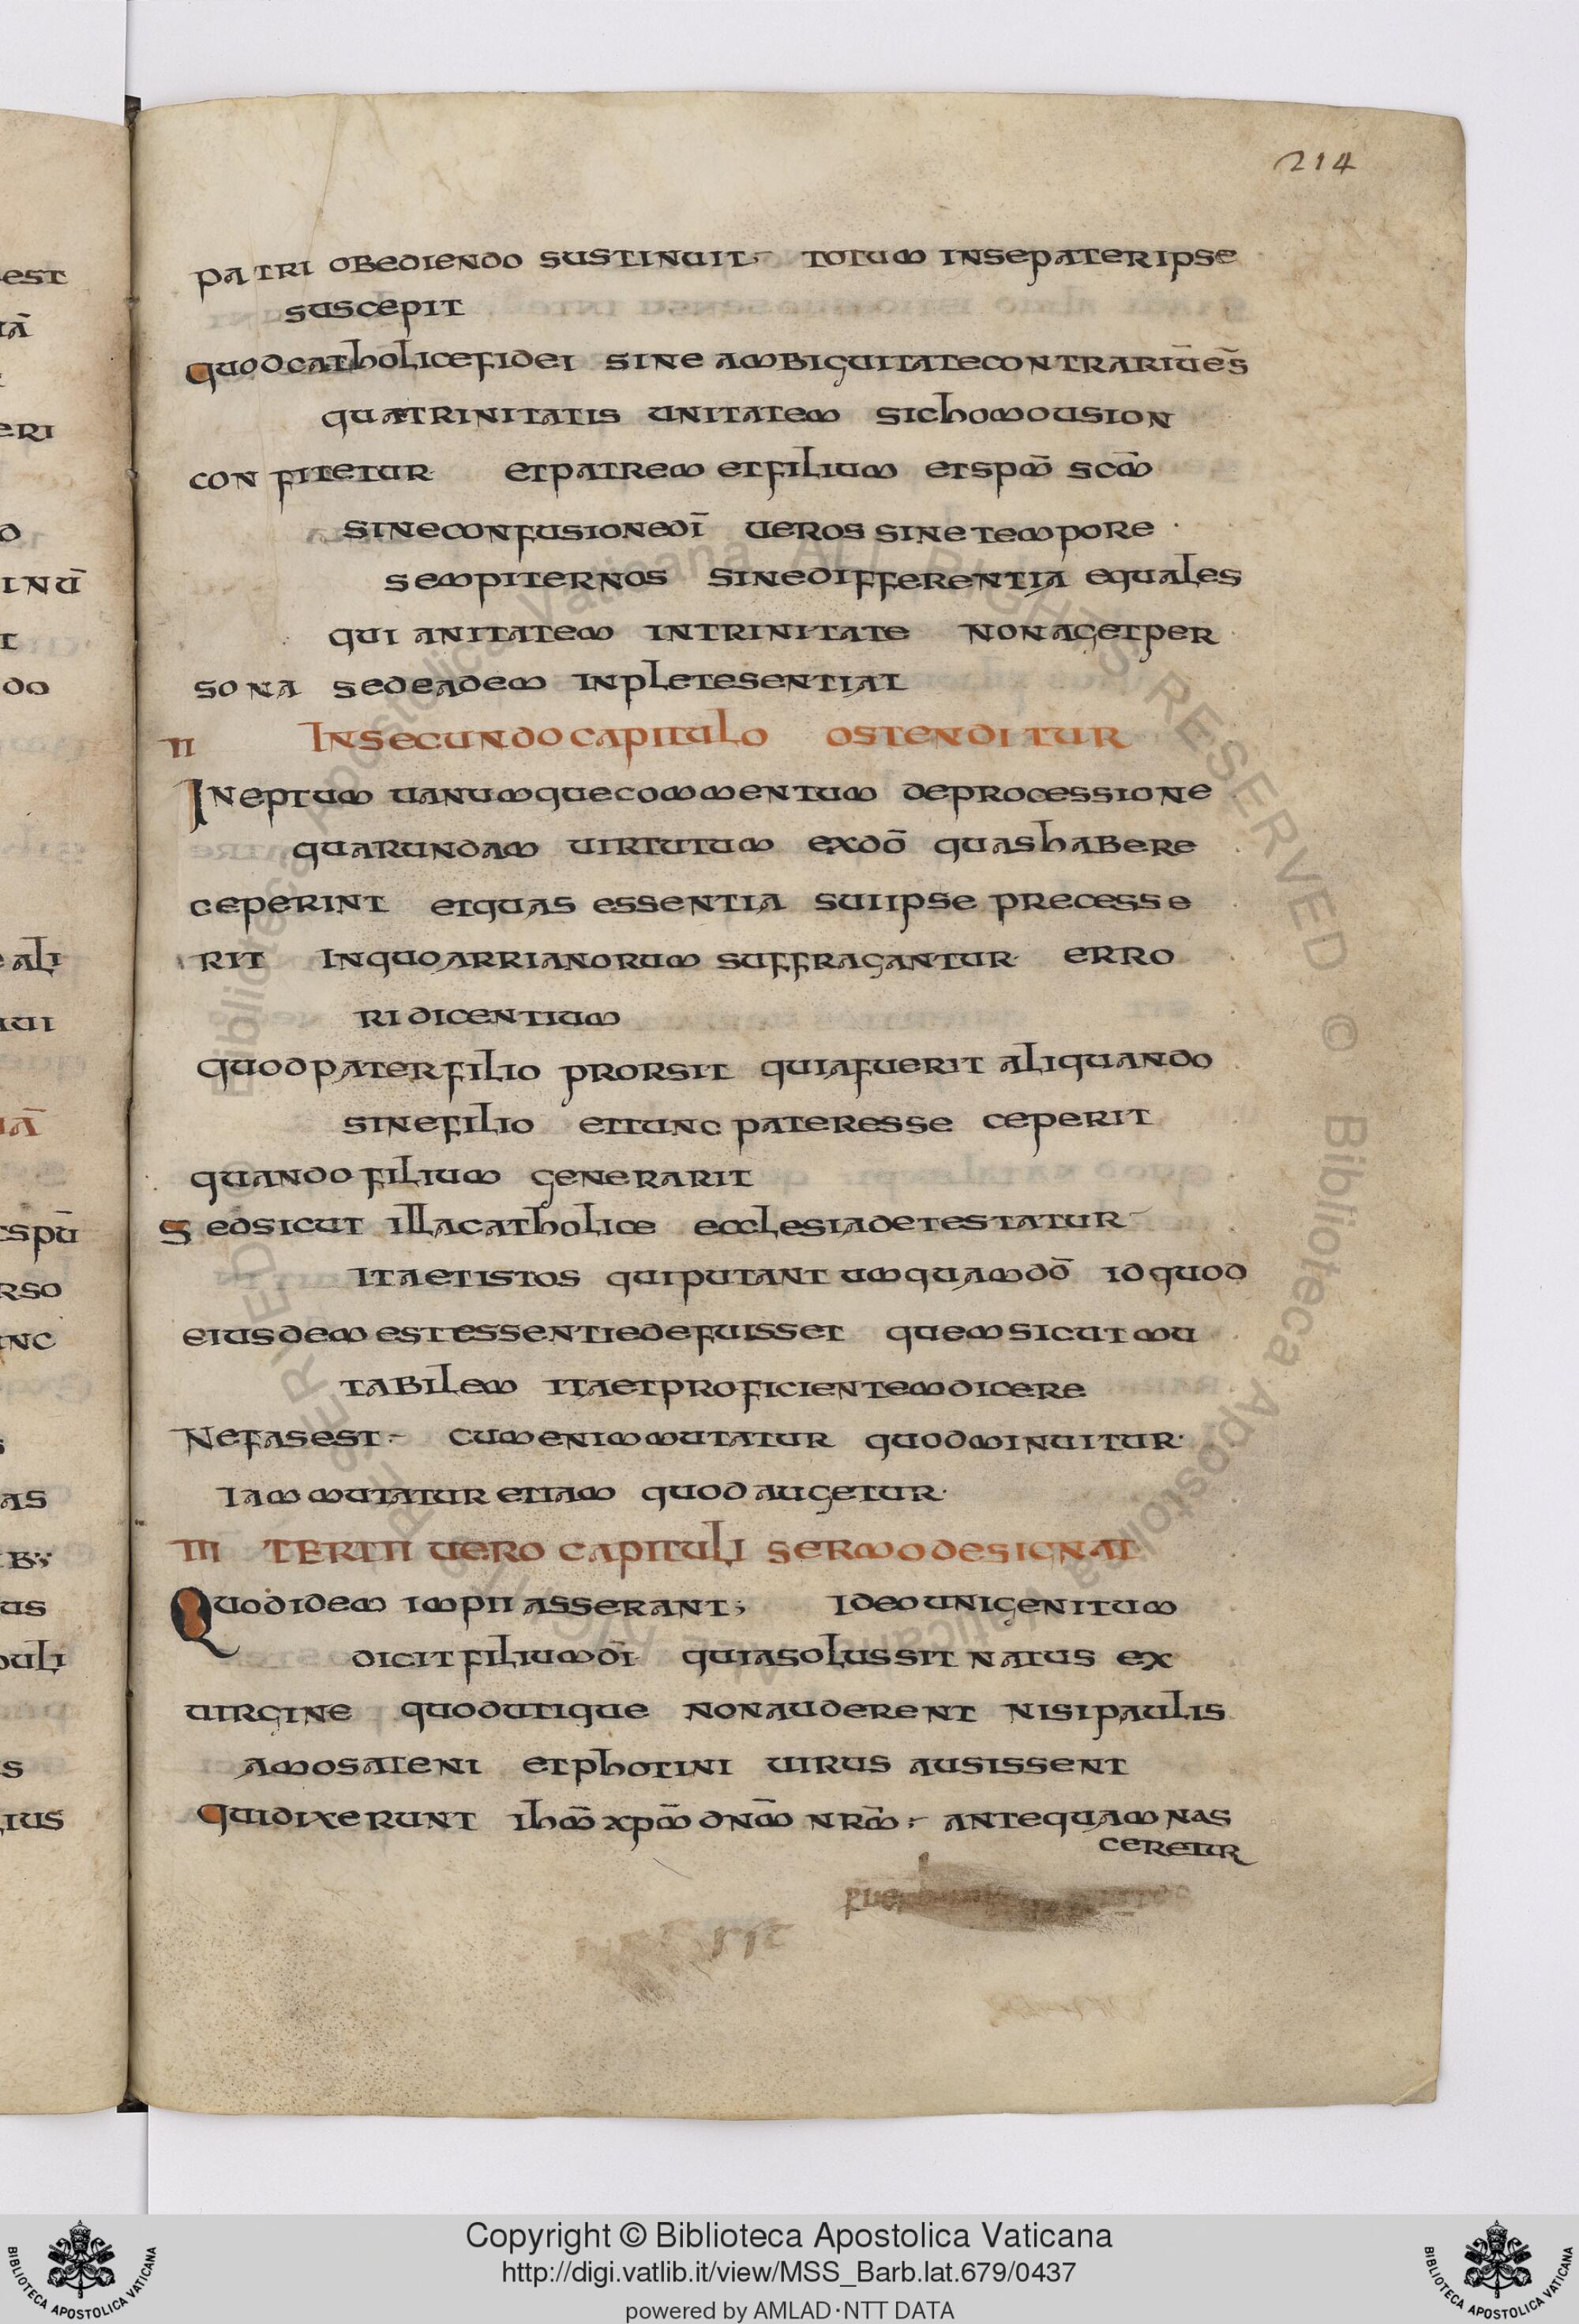 214
est
uā
eri
d
inū
t
do
ali
uui
uā
spū
rso
inc
s
as
b;
us
puli
s
lius
patri obediendo sustinuit, totum insepater ipse
suscepit
quodcatholicefidei sine ambiguitatecontrariūes̄
quaetrinitatis unitatem sichomousion
confitetur. etpatrem etfilium etspm̄ scm̄
sineconfusionedī ueros sinetempore ·
sempiternos sinedifferentia equales
qui anitatem intrinitate nonagetper
sona sedeadem inpletesentiat
II Insecundocapitulo ostenditur
Ineptum uanumquecommentum deprocessione
quarundam uirtutum exdō quashabere
ceperint etquas essentia suiipse precesse
rit inquoarrianorum suffragantur erro
ri dicentium
quodpaterfilio prorsit quiafuerit aliquando
sinefilio ettunc pateresse ceperit
quandofilium generarit
Sedsicut illacatholice ecclesiadetestatur
itaetistos quiputant umquamdō idquod
eiusdem estessentiedefuisset quemsicut mu
tabilem itaetproficientemdicere
Nefasest· cumenimmutatur quodminuitur·
iammutatur etiam quod augetur·
III Tertii uero capituli sermodesignat
Quodidem impii asserant; Ideounigenitum
dicit filiumdī quiasolussit natus ex
uirgine quodutique nonauderent nisipaulis
amosateni etphotini uirus ausissent
quidixerunt ihm̄ xpm̄ dnm̄ nrm̄ antequam nas
ceretur
Copyright © Biblioteca Apostolica Vaticana
http://digi.vatlib.it/view/MSS_Barb.lat.679/0437
powered by AMLAD·NTT DATA
BIBLIOTECA APOSTOLICA VATICANA
BIBLIOTECA APOSTOLICA VATICANA